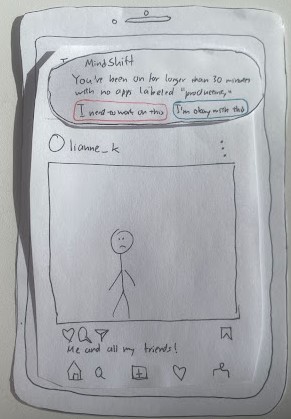 MindShift
You've been on for longer than 30 minutes
with no apps labeled "productive"
I need to work on this
I'm okay with this
lianne_k
Me and all my friends!